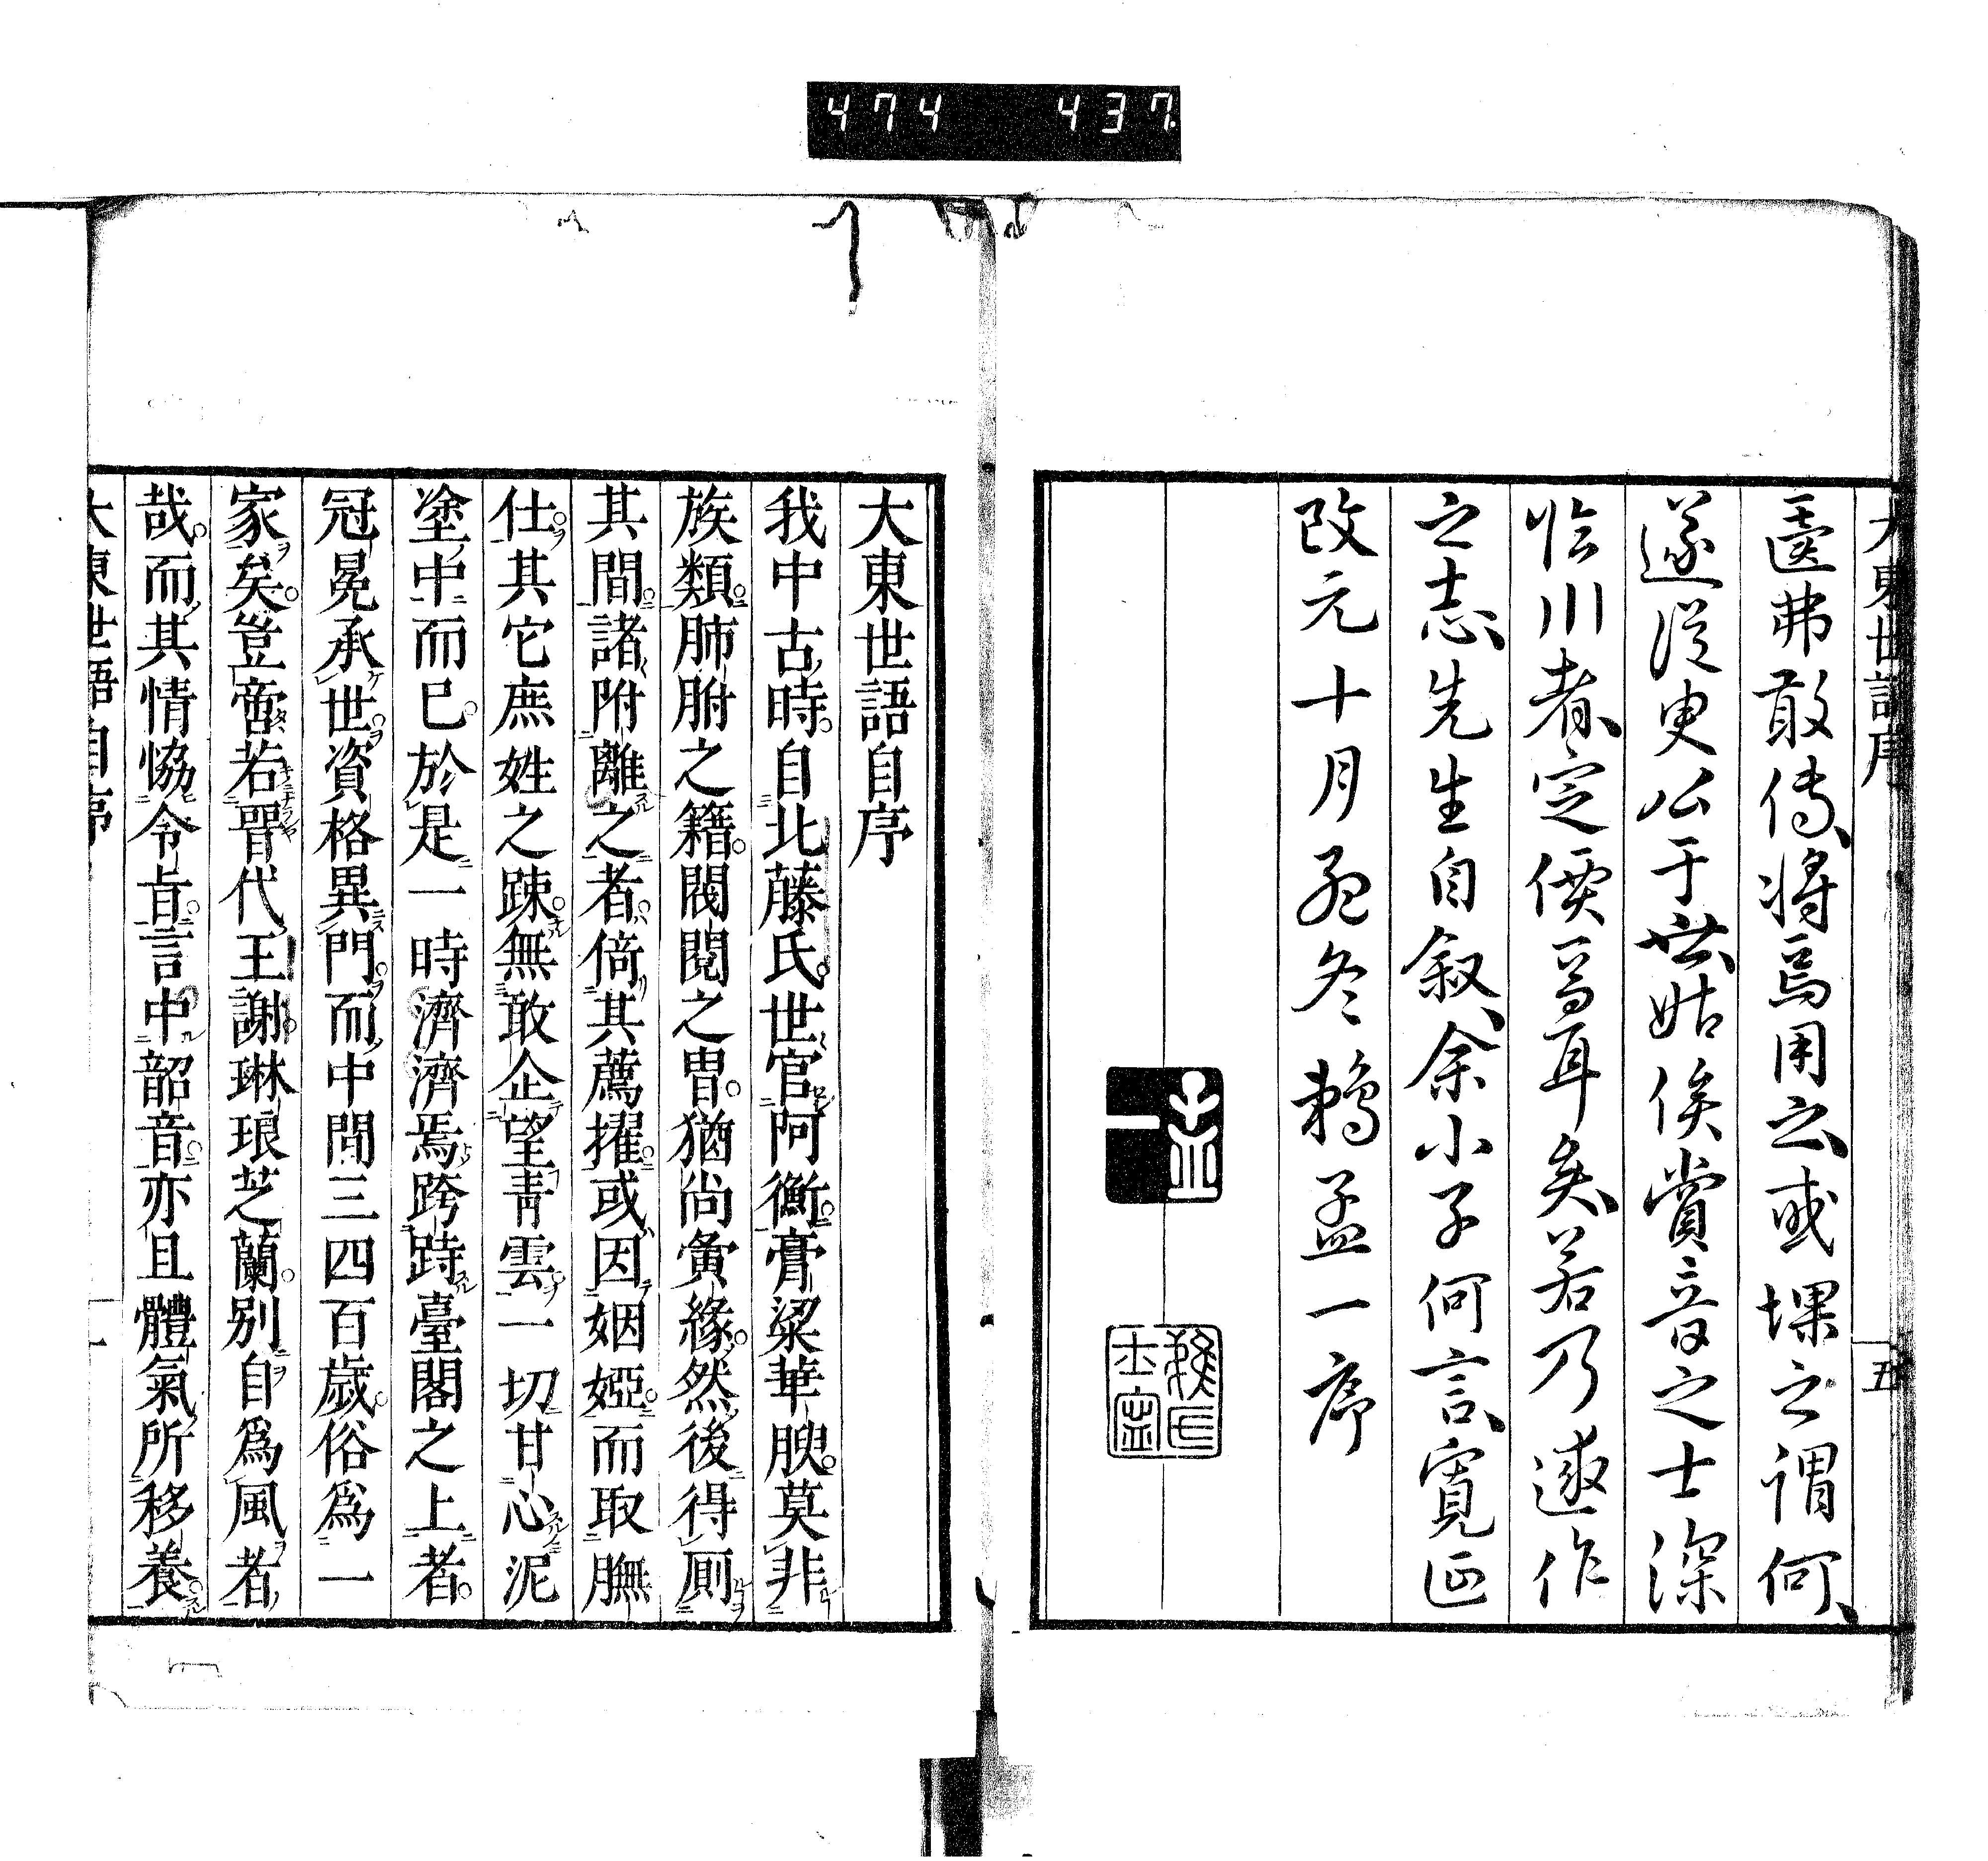 474 437
大東世語序
五
遽弗敢傳將焉用之或堁之謂何
遂從臾公于世姑俟賞音之士深
臨川者定價焉耳矣若乃遽作
之志先生自叙余小子何言寛延
改元十月孟冬鵜孟一序
大東世語自序
我中古時自北藤氏世官阿衡膏粱華腴莫非
族類肺胕之籍閥閱之胄猶尚夤緣然後得厠
其間諸附離之者倚其薦擢或因姻婭而取膴
仕其它庶姓之踈無敢企望青雲一切甘心泥
塗中而已於是一時濟濟焉跨跱臺閣之上者
冠冕承世資格異門而中間三四百歲俗爲一
家矣豈啻若晉代王謝琳琅芝蘭別自爲風者
哉而其情恊令旨言中韶音亦且體氣所移養
大東世語自序
一